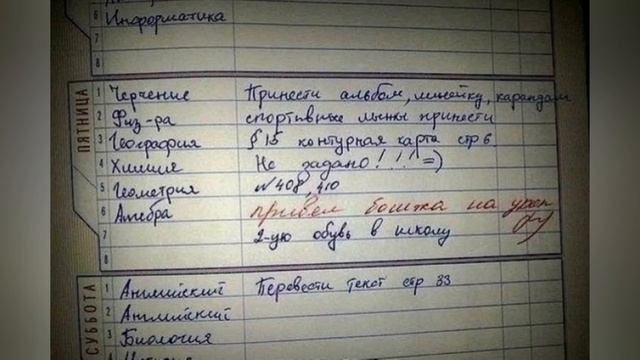 6 Информатика
7
8
ПЯТНИЦА
1 Черчение Принести альбом, линейку, карандаш
2 Физ-ра спортивные лыжы принести
3 География § 15 контурная карта стр 6.
4 Химия Не задано!!!! =)
5 Геометрия №408, 410
6 Алгебра привёл бошка на урок
7 2-ую обувь в школу
8
СУББОТА
1 Английский Перевести текст стр 33
2 Английский
3 Биология
4